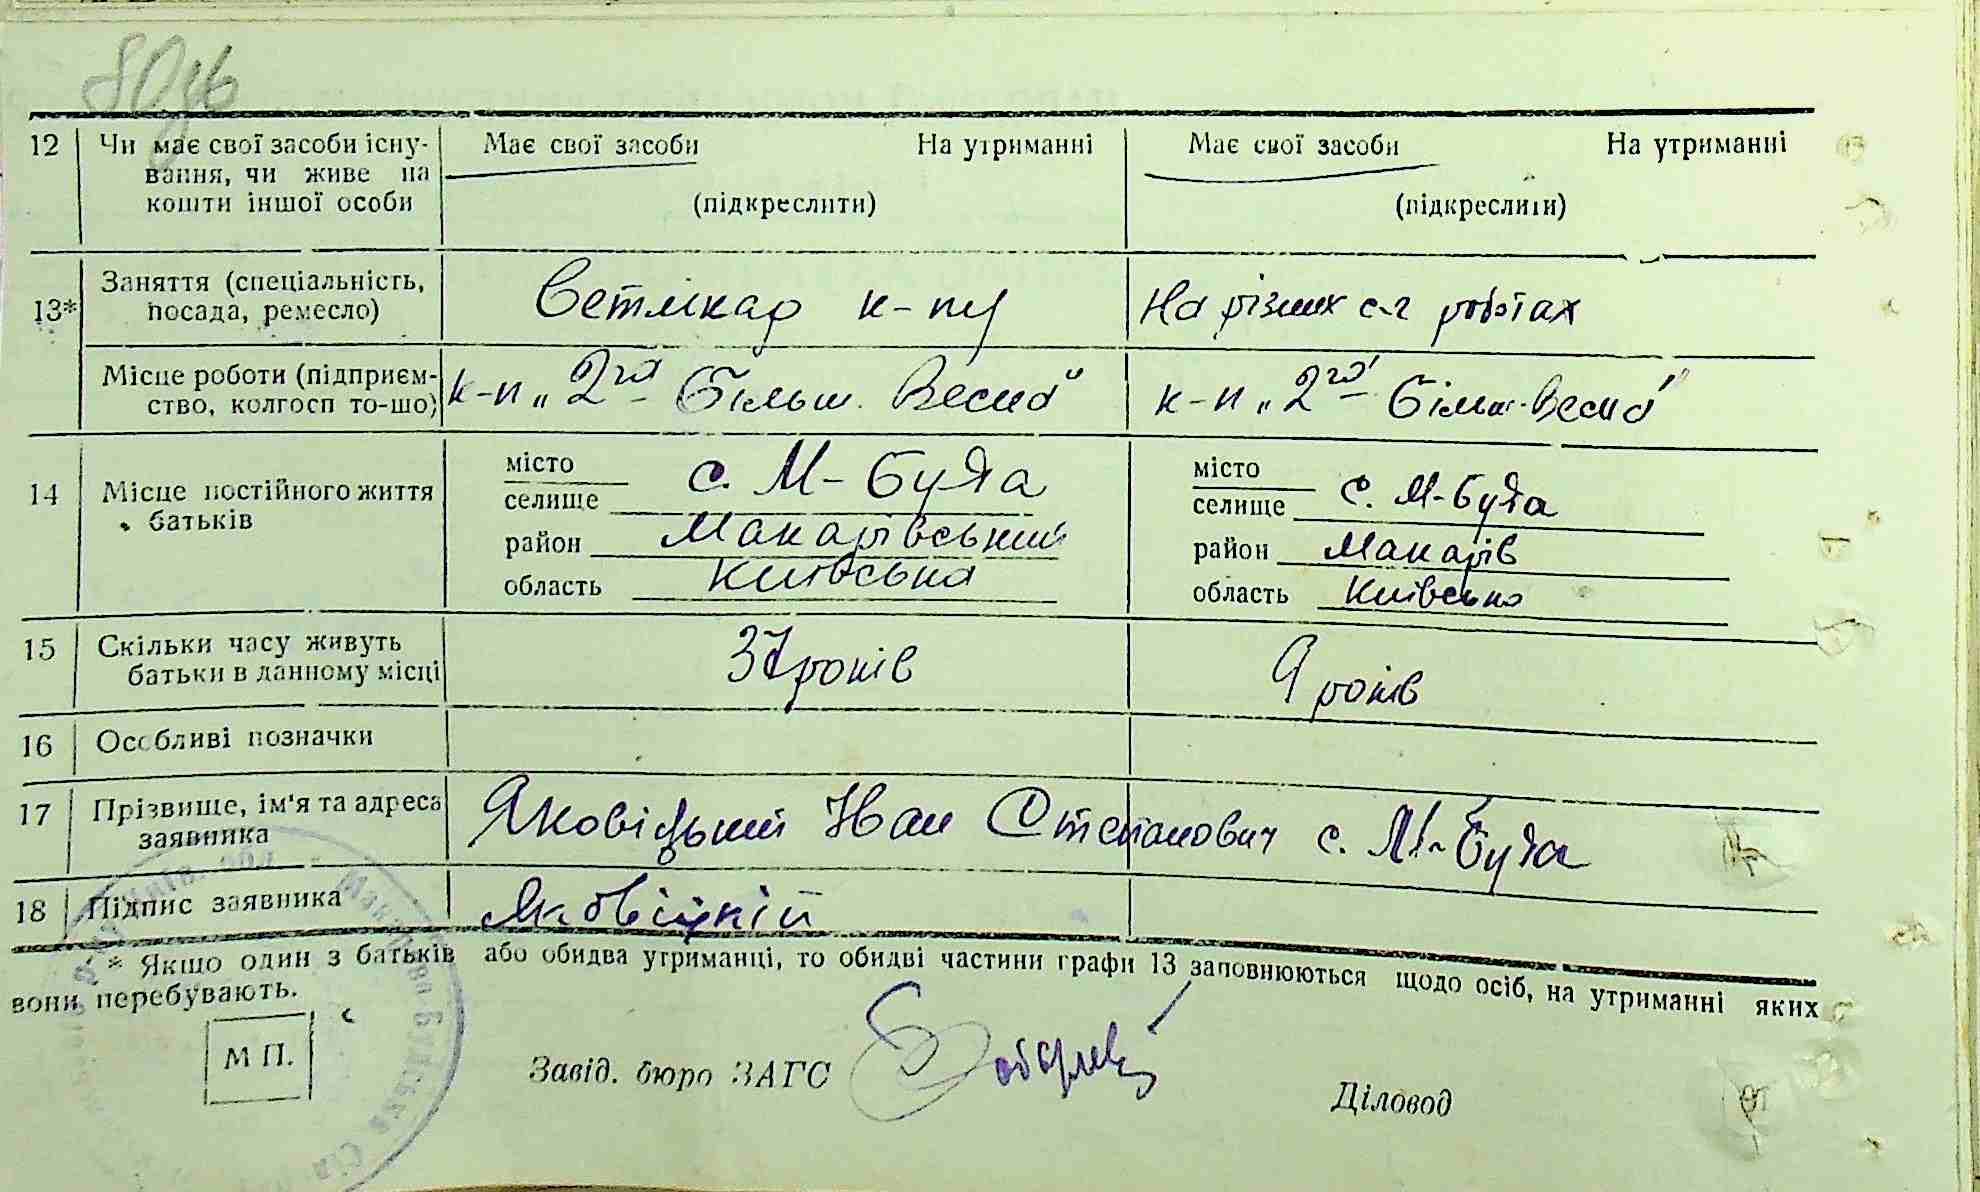 12 Чи має свої засоби існу- Має свої засоби На утриманні Має свої засоби На утриманні
вання, чи живе на
кошти іншої особи (підкреслити) (підкреслити)
13* Заняття (спеціальність, Ветлікар к-пу На різних с-г роботах
посада, ремесло)
Місце роботи (підприєм- к-п „2га Більш. Весна" к-п „2га Більш. Весна"
ство, колгосп то-шо)
14 Місце постійного життя місто с. М-Буда місто с. М-Буда
батьків селище селище
район Макарівський район Макарів
область Київська область Київська
15 Скільки часу живуть 37 років 9 років
батьки в данному місці
16 Особливі позначки
17 Прізвище, ім'я та адреса Яковіцький Іван Степанович с. М-Буда
заявника
18 Підпис заявника Яковіцкій
* Якщо один з батьків або обидва утриманці, то обидві частини графи 13 заповнюються щодо осіб, на утриманні яких
вони перебувають.
М П. Завід. бюро ЗАГС Діловод